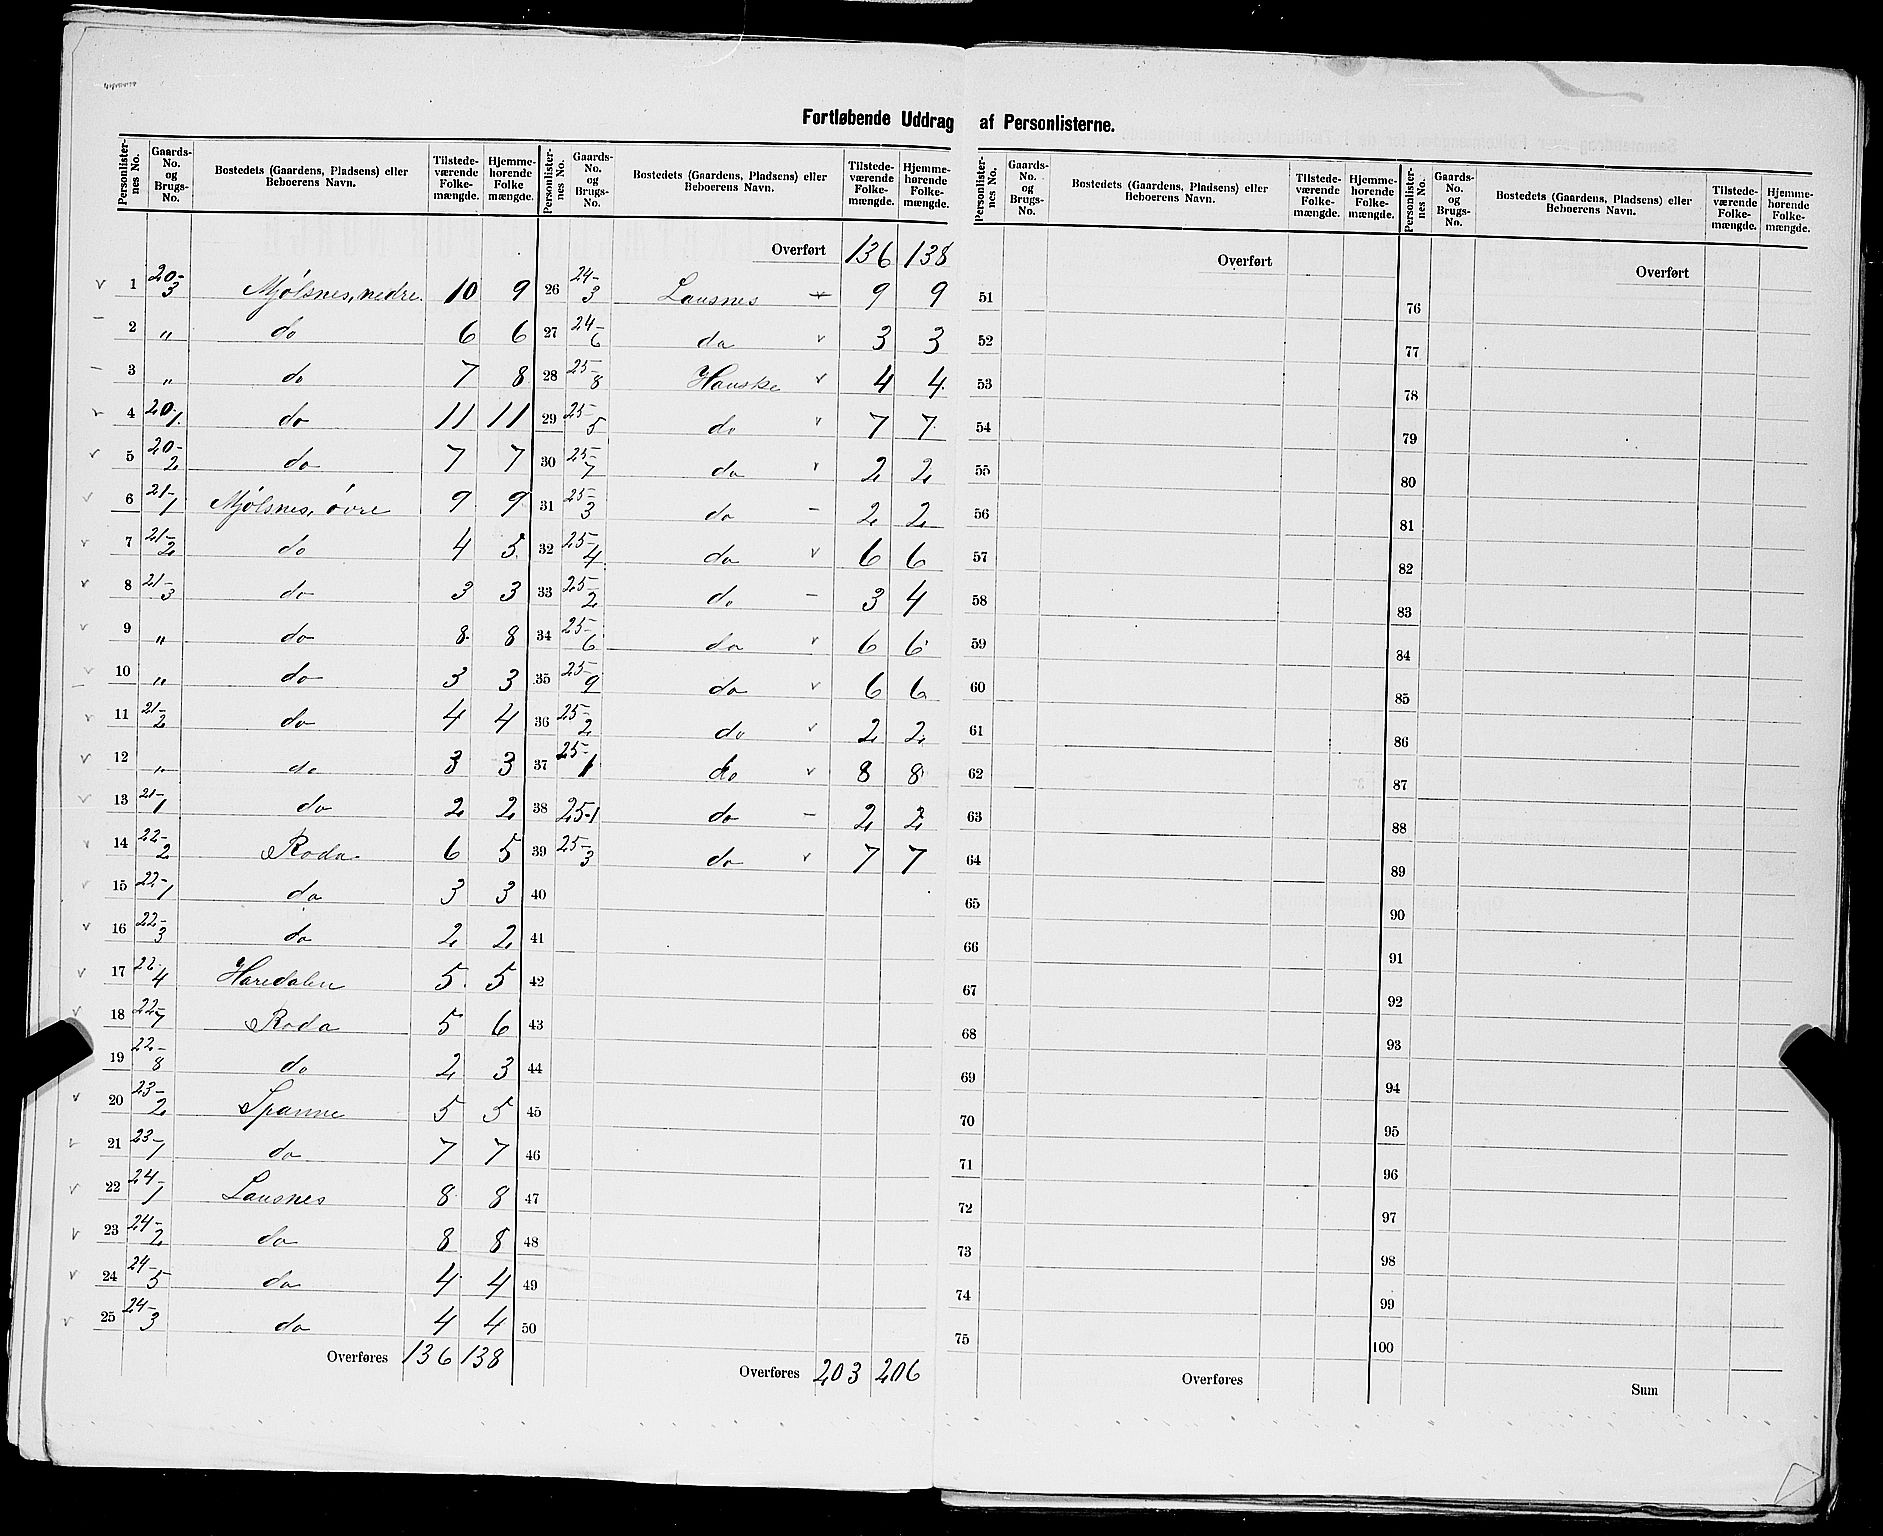 Fortløbende Uddrag af Personlisterne.
Personlisternes No. | Gaards-No. og Brugs-No. | Bostedets (Gaardens, Pladsens) eller Beboerens Navn. | Tilstedeværende Folkemængde. | Hjemmehørende Folkemængde.
1 | 20-3 | Mjølsnes, nedre. | 10 | 9
2 | „ | do | 6 | 6
3 | „ | do | 7 | 8
4 | 20-1 | do | 11 | 11
5 | 20-2 | do | 7 | 7
6 | 21-1 | Mjølsnes, øvre | 9 | 9
7 | 21-2 | do | 4 | 5
8 | 21-3 | do | 3 | 3
9 | „ | do | 8 | 8
10 | „ | do | 3 | 3
11 | 21-2 | do | 4 | 4
12 | „ | do | 3 | 3
13 | 21-1 | do | 2 | 2
14 | 22-2 | Roda | 6 | 5
15 | 22-1 | do | 3 | 3
16 | 22-3 | do | 2 | 2
17 | 22-4 | Haredalen | 5 | 5
18 | 22-7 | Roda | 5 | 6
19 | 22-8 | do | 2 | 3
20 | 23-2 | Spanne | 5 | 5
21 | 23-1 | do | 7 | 7
22 | 24-1 | Lausnes | 8 | 8
23 | 24-2 | do | 8 | 8
24 | 24-5 | do | 4 | 4
25 | 24-3 | do | 4 | 4
Overføres 136 138
Personlisternes No. | Gaards-No. og Brugs-No. | Bostedets (Gaardens, Pladsens) eller Beboerens Navn. | Tilstedeværende Folkemængde. | Hjemmehørende Folkemængde.
Overført 136 138
26 | 24-3 | Lausnes | 9 | 9
27 | 24-6 | do | 3 | 3
28 | 25-8 | Hauske | 4 | 4
29 | 25-5 | do | 7 | 7
30 | 25-7 | do | 2 | 2
31 | 25-3 | do | 2 | 2
32 | 25-4 | do | 6 | 6
33 | 25-2 | do | 3 | 4
34 | 25-6 | do | 6 | 6
35 | 25-9 | do | 6 | 6
36 | 25-2 | do | 2 | 2
37 | 25-1 | do | 8 | 8
38 | 25-1 | do | 2 | 2
39 | 25-3 | do | 7 | 7
40
41
42
43
44
45
46
47
48
49
50
Overføres 203 206
Personlisternes No. | Gaards-No. og Brugs-No. | Bostedets (Gaardens, Pladsens) eller Beboerens Navn. | Tilstedeværende Folkemængde. | Hjemmehørende Folkemængde.
Overført
51
52
53
54
55
56
57
58
59
60
61
62
63
64
65
66
67
68
69
70
71
72
73
74
75
Overføres
Personlisternes No. | Gaards-No. og Brugs-No. | Bostedets (Gaardens, Pladsens) eller Beboerens Navn. | Tilstedeværende Folkemængde. | Hjemmehørende Folkemængde.
Overført
76
77
78
79
80
81
82
83
84
85
86
87
88
89
90
91
92
93
94
95
96
97
98
99
100
Sum